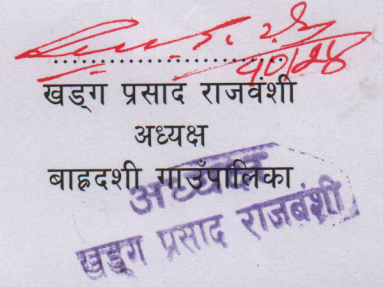 खड्ग प्रसाद राजवंशी
अध्यक्ष
बाह्रदशी गाउँपालिका
अध्यक्ष
खड्ग प्रसाद राजबंशी